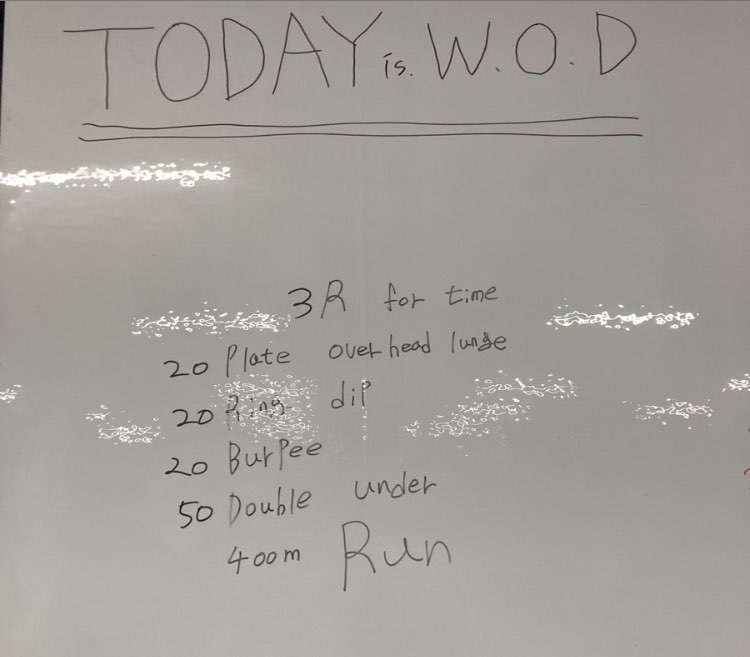 TODAY is. W.O.D
3R for time
20 Plate overhead lunge
20 Ring dip
20 Burpee
50 Double under
400m Run